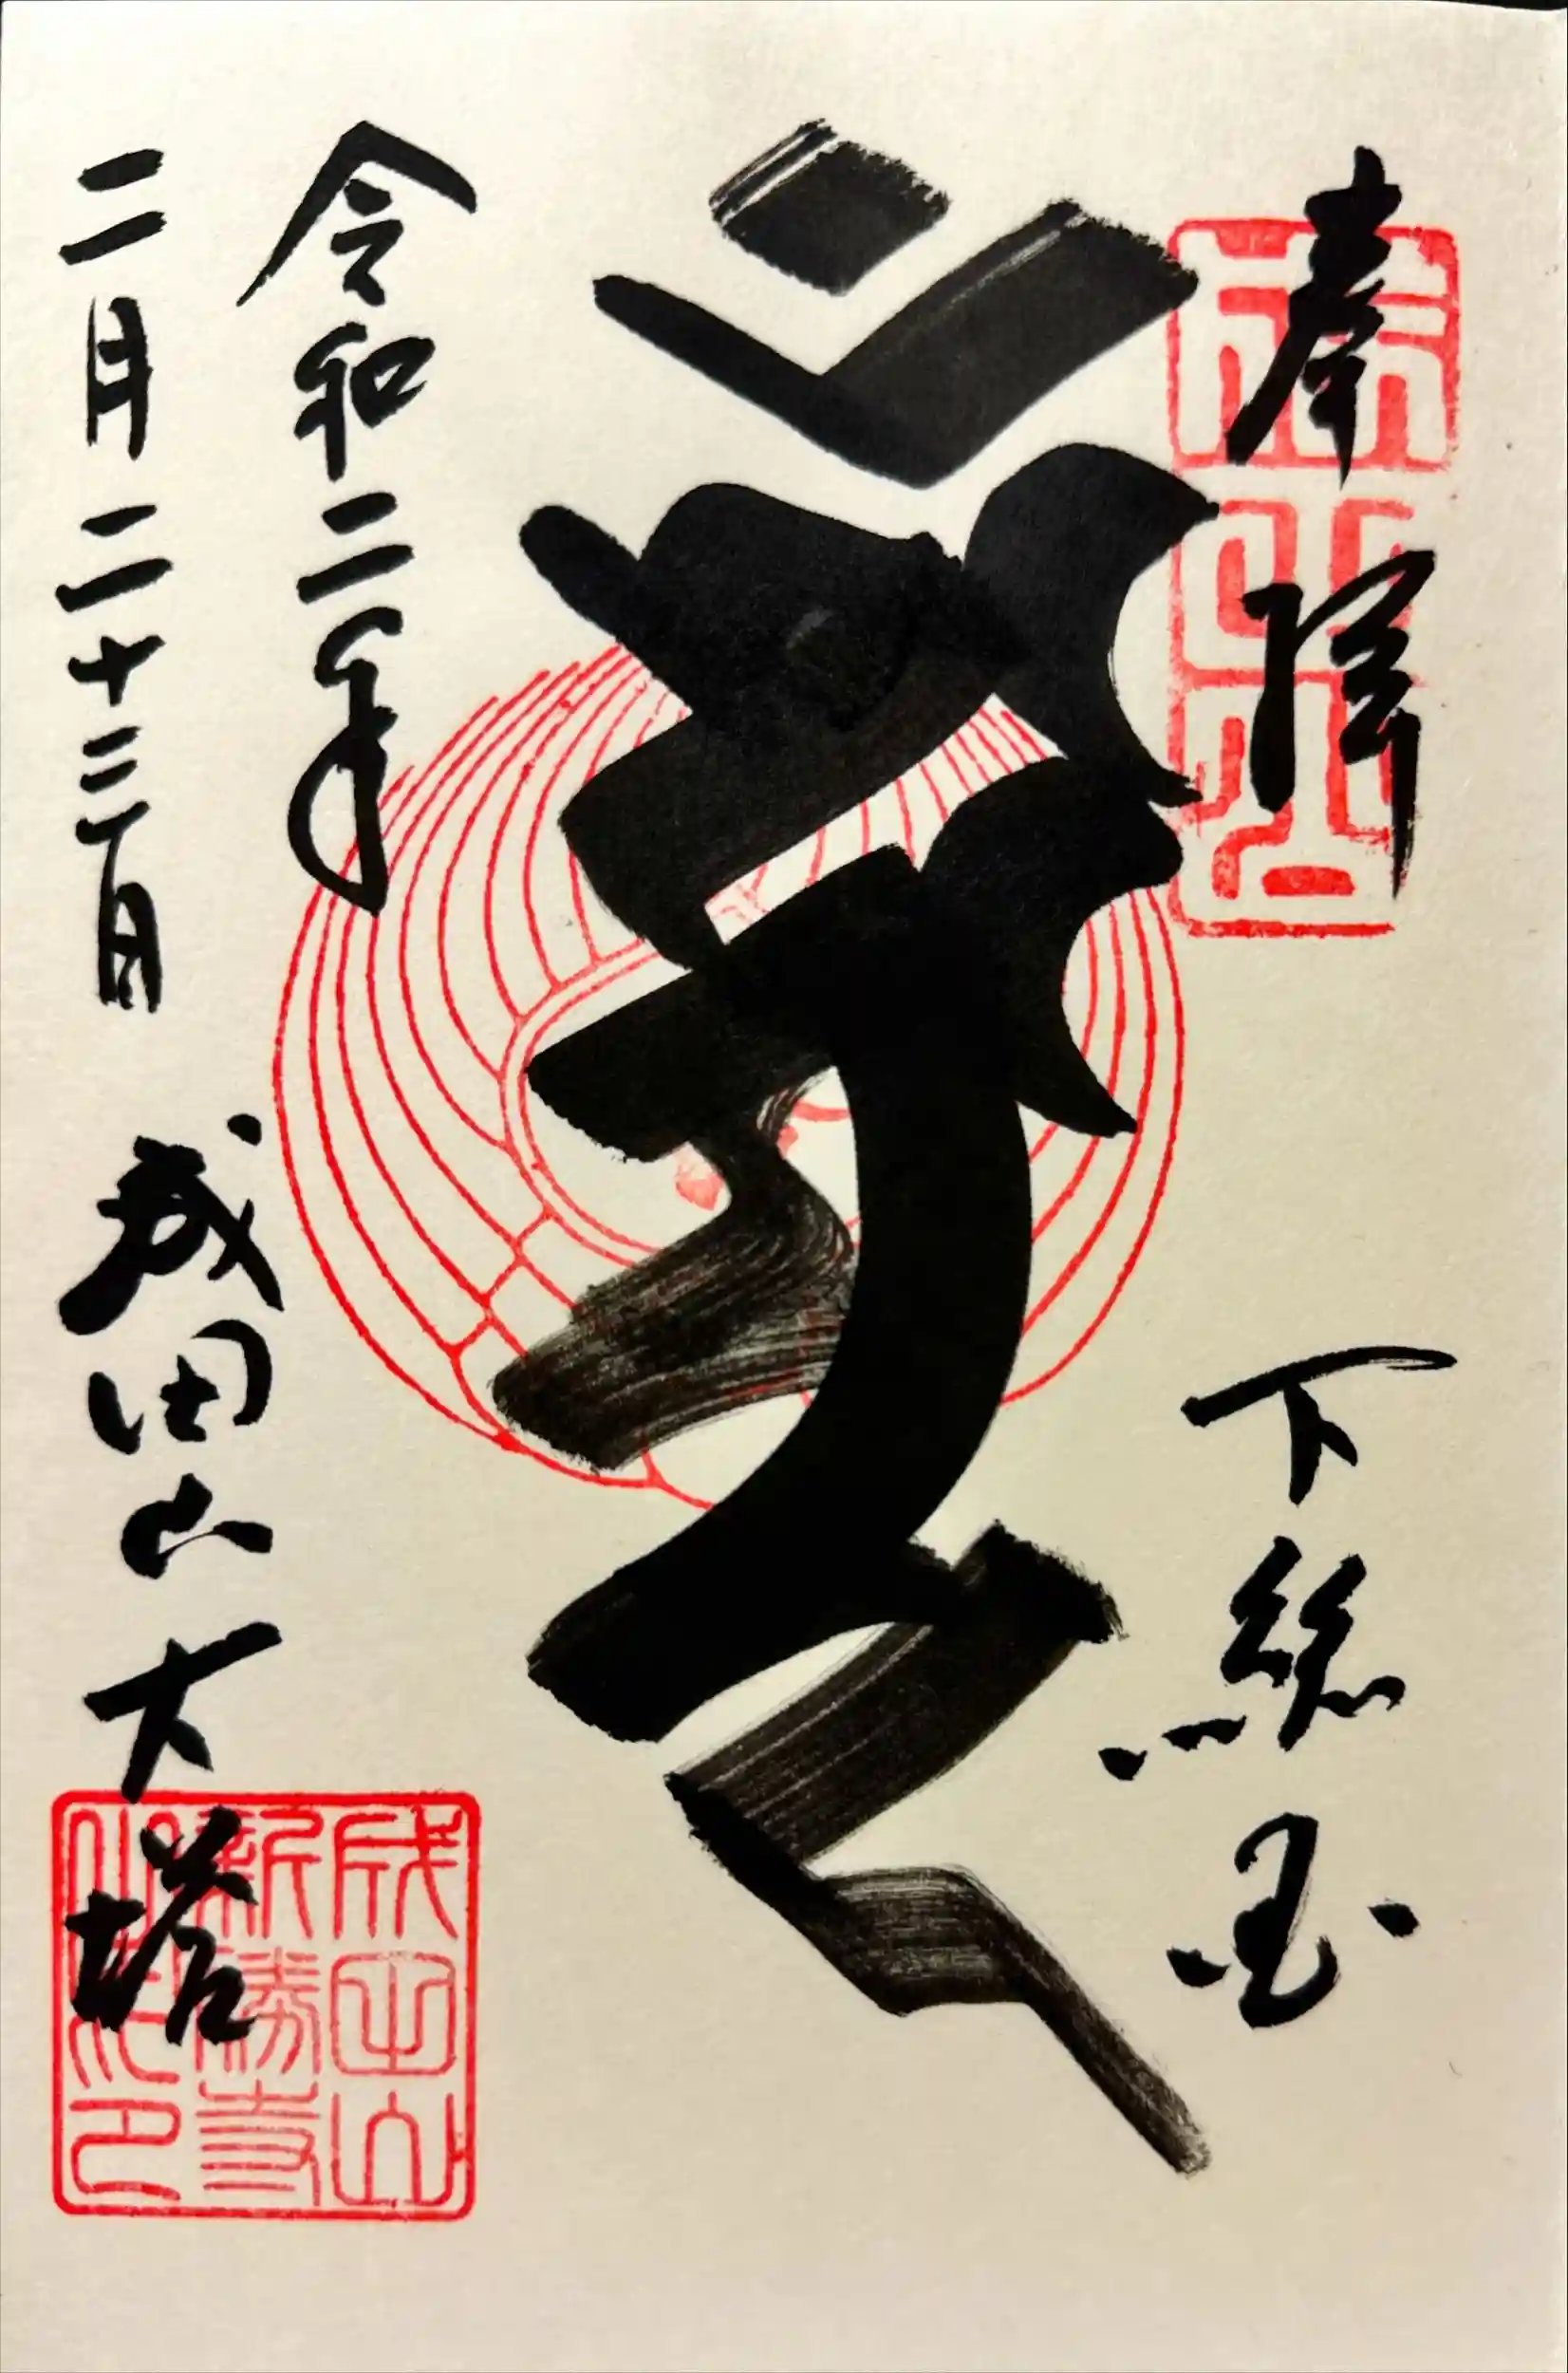 奉拝
下総国
令和二年
二月二十三日
成田山大塔
成田山
成田山
新勝寺